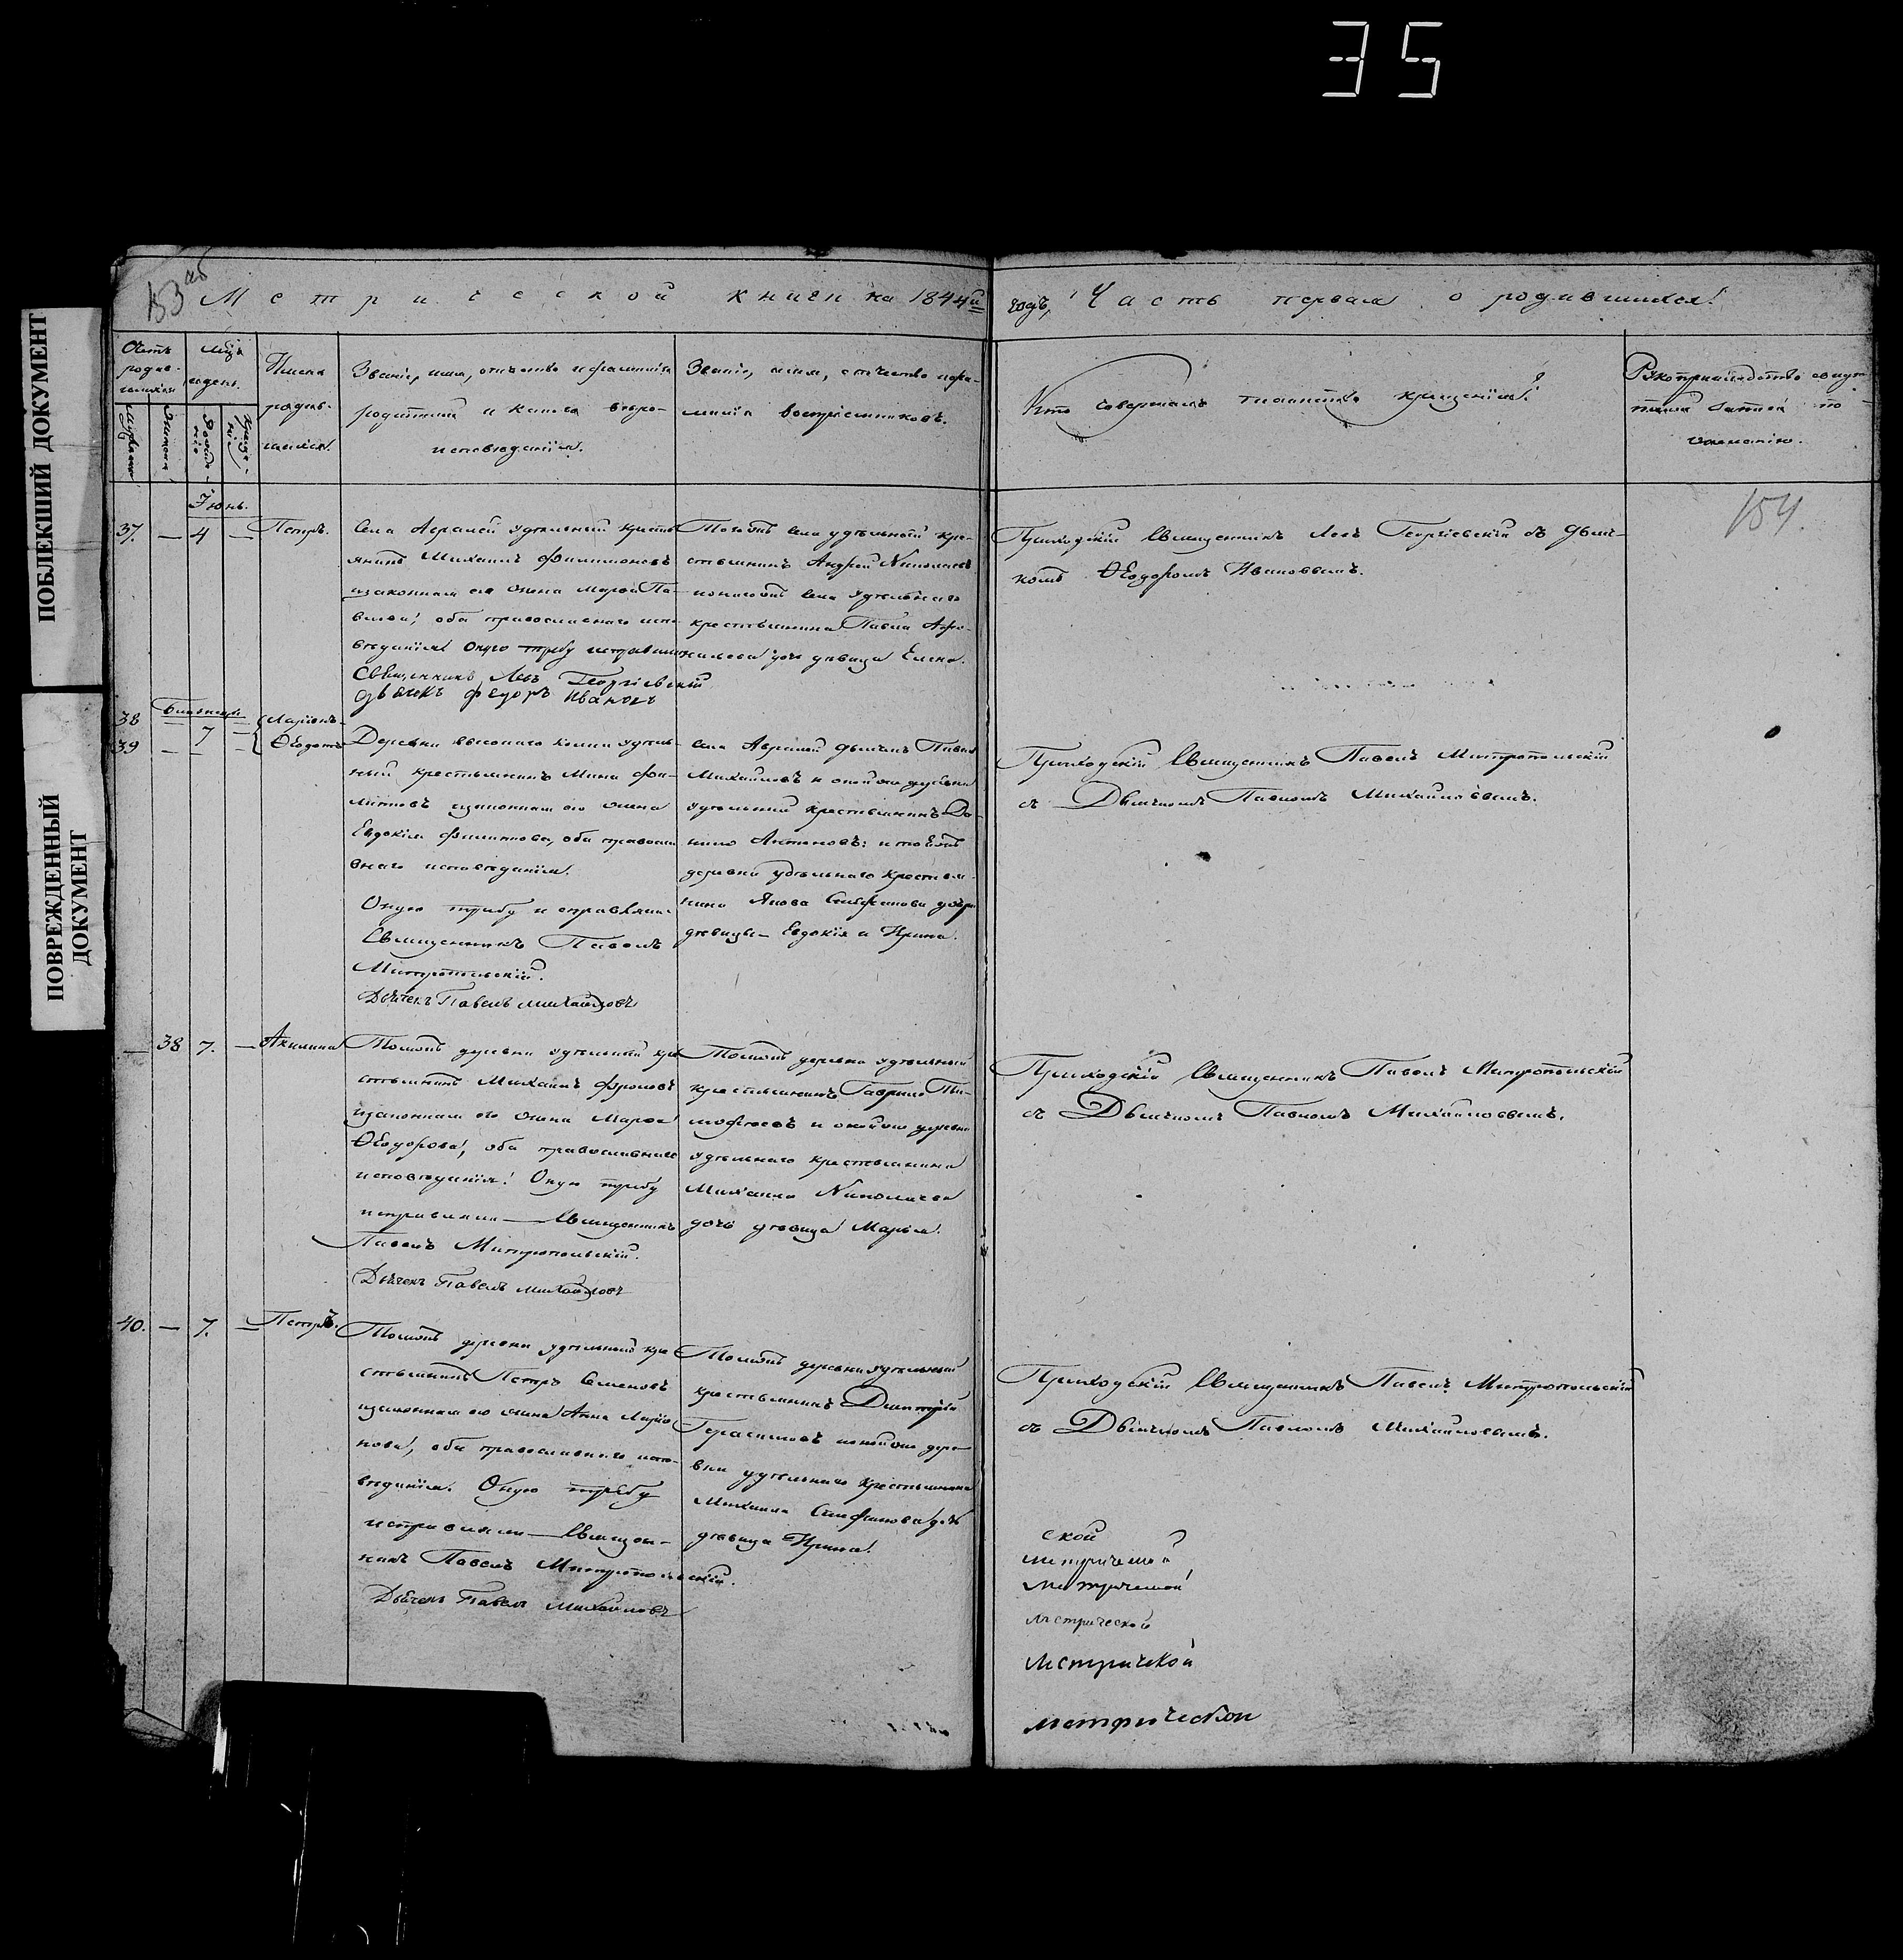 35
ПОБЛЕКШИЙ ДОКУМЕНТ
ПОВРЕЖДЕННЫЙ
ДОКУМЕНТ
153 об
Метрической книги на 1844й
годъ, Часть первая о родившихся.
Счетъ
родив-
шихся
Мѣц
и день.
Мужеска
Женска
Рожде-
нія
Креще-
нія
Имена
родив-
шихся.
Званіе, имя, отчество и фамилія
родителей и какого вѣро-
исповѣданія.
Званіе, имя, отчество и фа-
милія воспріемниковъ.
Кто совершалъ таинство крещенія?
Рукоприкладство свидѣ-
телей записи по
желанію.
154.
Іюнь.
37. — 4 — Петръ.
Села Авралей удѣльный кресть
янинъ Михаилъ Филимоновъ
и законная его жена Марѳа Па-
влова, оба православнаго испо-
вѣданія. Оную требу исправляли
Священникъ Левъ Георгіевскій
дьячекъ Федоръ Ивановъ
Тогожъ села удѣльный кре-
стьянинъ Андрей Николаевъ
и тогожъ села удѣльнаго
крестьянина Павла
дочь дѣвица Елена.
Приходскій Священникъ Левъ Георгіевскій съ Дьяч-
комъ Ѳеодоромъ Ивановымъ.
Близнецы
38
39 — 7 — Ларіонъ
Ѳеодотъ
Деревни удѣль-
ный крестьянинъ Мина Фи-
липповъ и законная его жена
Евдокія Филиппова, оба правосла
внаго исповѣданія.
Оную требу исправляли
Священникъ Павелъ
Митропольскій.
Дьячекъ Павелъ Михайловъ
Села Авралей Дьячекъ Павелъ
Михайловъ и онойже деревни
удѣльный крестьянинъ Да-
нило Антоновъ: и тоежъ
деревни удѣльнаго крестья-
нина Якова Стефанова дочери
дѣвицы — Евдокія и Ирина.
Приходскій Священникъ Павелъ Митропольскій
съ Дьячкомъ Павломъ Михайловымъ.
— 38 7. — Акилина
Тоежъ деревни удѣльный кре
стьянинъ Михаилъ Фроловъ
и законная его жена Марѳа
Ѳеодорова, оба православнаго
исповѣданія. Оную требу
исправляли — Священникъ
Павелъ Митропольскій.
Дьячекъ Павелъ Михайловъ
Тоежъ деревни удѣльный
крестьянинъ Гаврило Ти-
мофѣевъ и онойже деревни
удѣльнаго крестьянина
Михаила Николаева
дочь дѣвица Марья.
Приходскій Священникъ Павелъ Митропольскій
съ Дьячкомъ Павломъ Михайловымъ.
40. — 7. — Петръ.
Тоежъ деревни удѣльный кре
стьянинъ Петръ Семеновъ
и законная его жена Анна Ларіо
нова, оба православнаго испо-
вѣданія. Оную требу
исправляли — Священ-
никъ Павелъ Митропольскій.
Дьячекъ Павелъ Михайловъ
Тоежъ деревни удѣльный
крестьянинъ Димитрій
Герасимовъ и онойже дере-
вни удѣльнаго крестьянина
Михаила Стефанова дочь
дѣвица Ирина.
Приходскій Священникъ Павелъ Митропольскій
съ Дьячкомъ Павломъ Михайловымъ.
ской
метрической
метрической
метрической
метрической
метрической